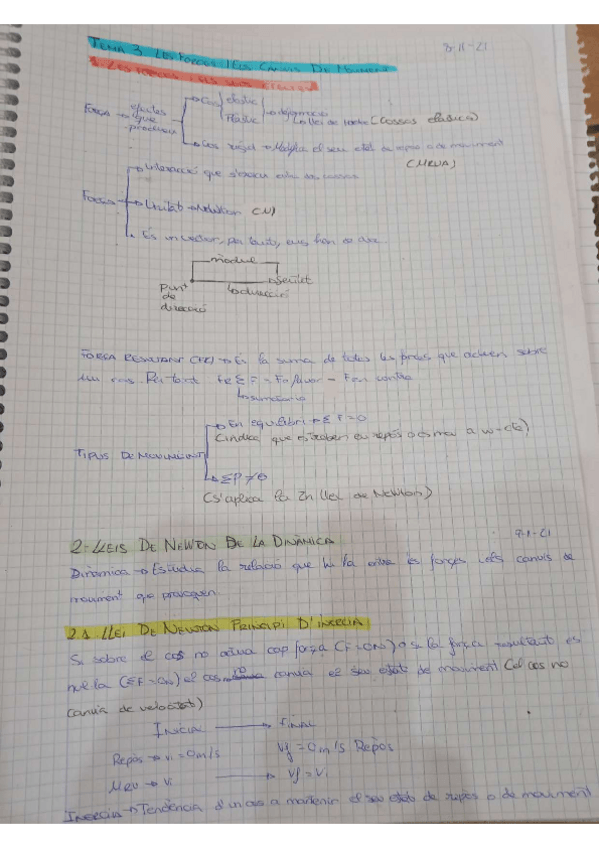 TEMA 3. LES FORCES I ELS CANVIS DE MOVIMENT
3-11-21
1. LES FORCES
Força
efectes
que
produeixen
Cos
elàstic
Plàstic
deformació
Llei de Hooke (cossos elàstics)
Cos rígid → Modifica el seu estat de repòs o de moviment
(MRUA)
Interacció que
Força
Unitat → Newton (N)
És un vector, per tant,
mòdul
sentit
direcció
Punt
de
direcció
FORÇA RESULTANT (FR) → És la suma de totes les forces que actuen sobre
un cos. Per tant FR Σ F = Fa favor - Fen contra
sumatoria
TIPUS DE MOVIMENT
En equilibri → Σ F = 0
(indica que
ΣF ≠ 0
(s'aplica la 2n llei de Newton)
2-LLEIS DE NEWTON DE LA DINÀMICA
Dinàmica → Estudia la relació que hi ha entre les forces i els canvis de
moviment que provoquen.
2.1 LLEI DE NEWTON PRINCIPI D'INÈRCIA
Si sobre el cos no actua cap força (F=0N) o si la força resultant és
nul·la (ΣF=0N) el cos no canvia el seu estat de moviment (el cos no
canvia de velocitat)
INICIAL → FINAL
Repòs → vi = 0m/s Vf = 0m/s Repòs
MRU → Vi → Vf = Vi
INÈRCIA → Tendència d'un cos a mantenir el seu estat de repòs o de moviment